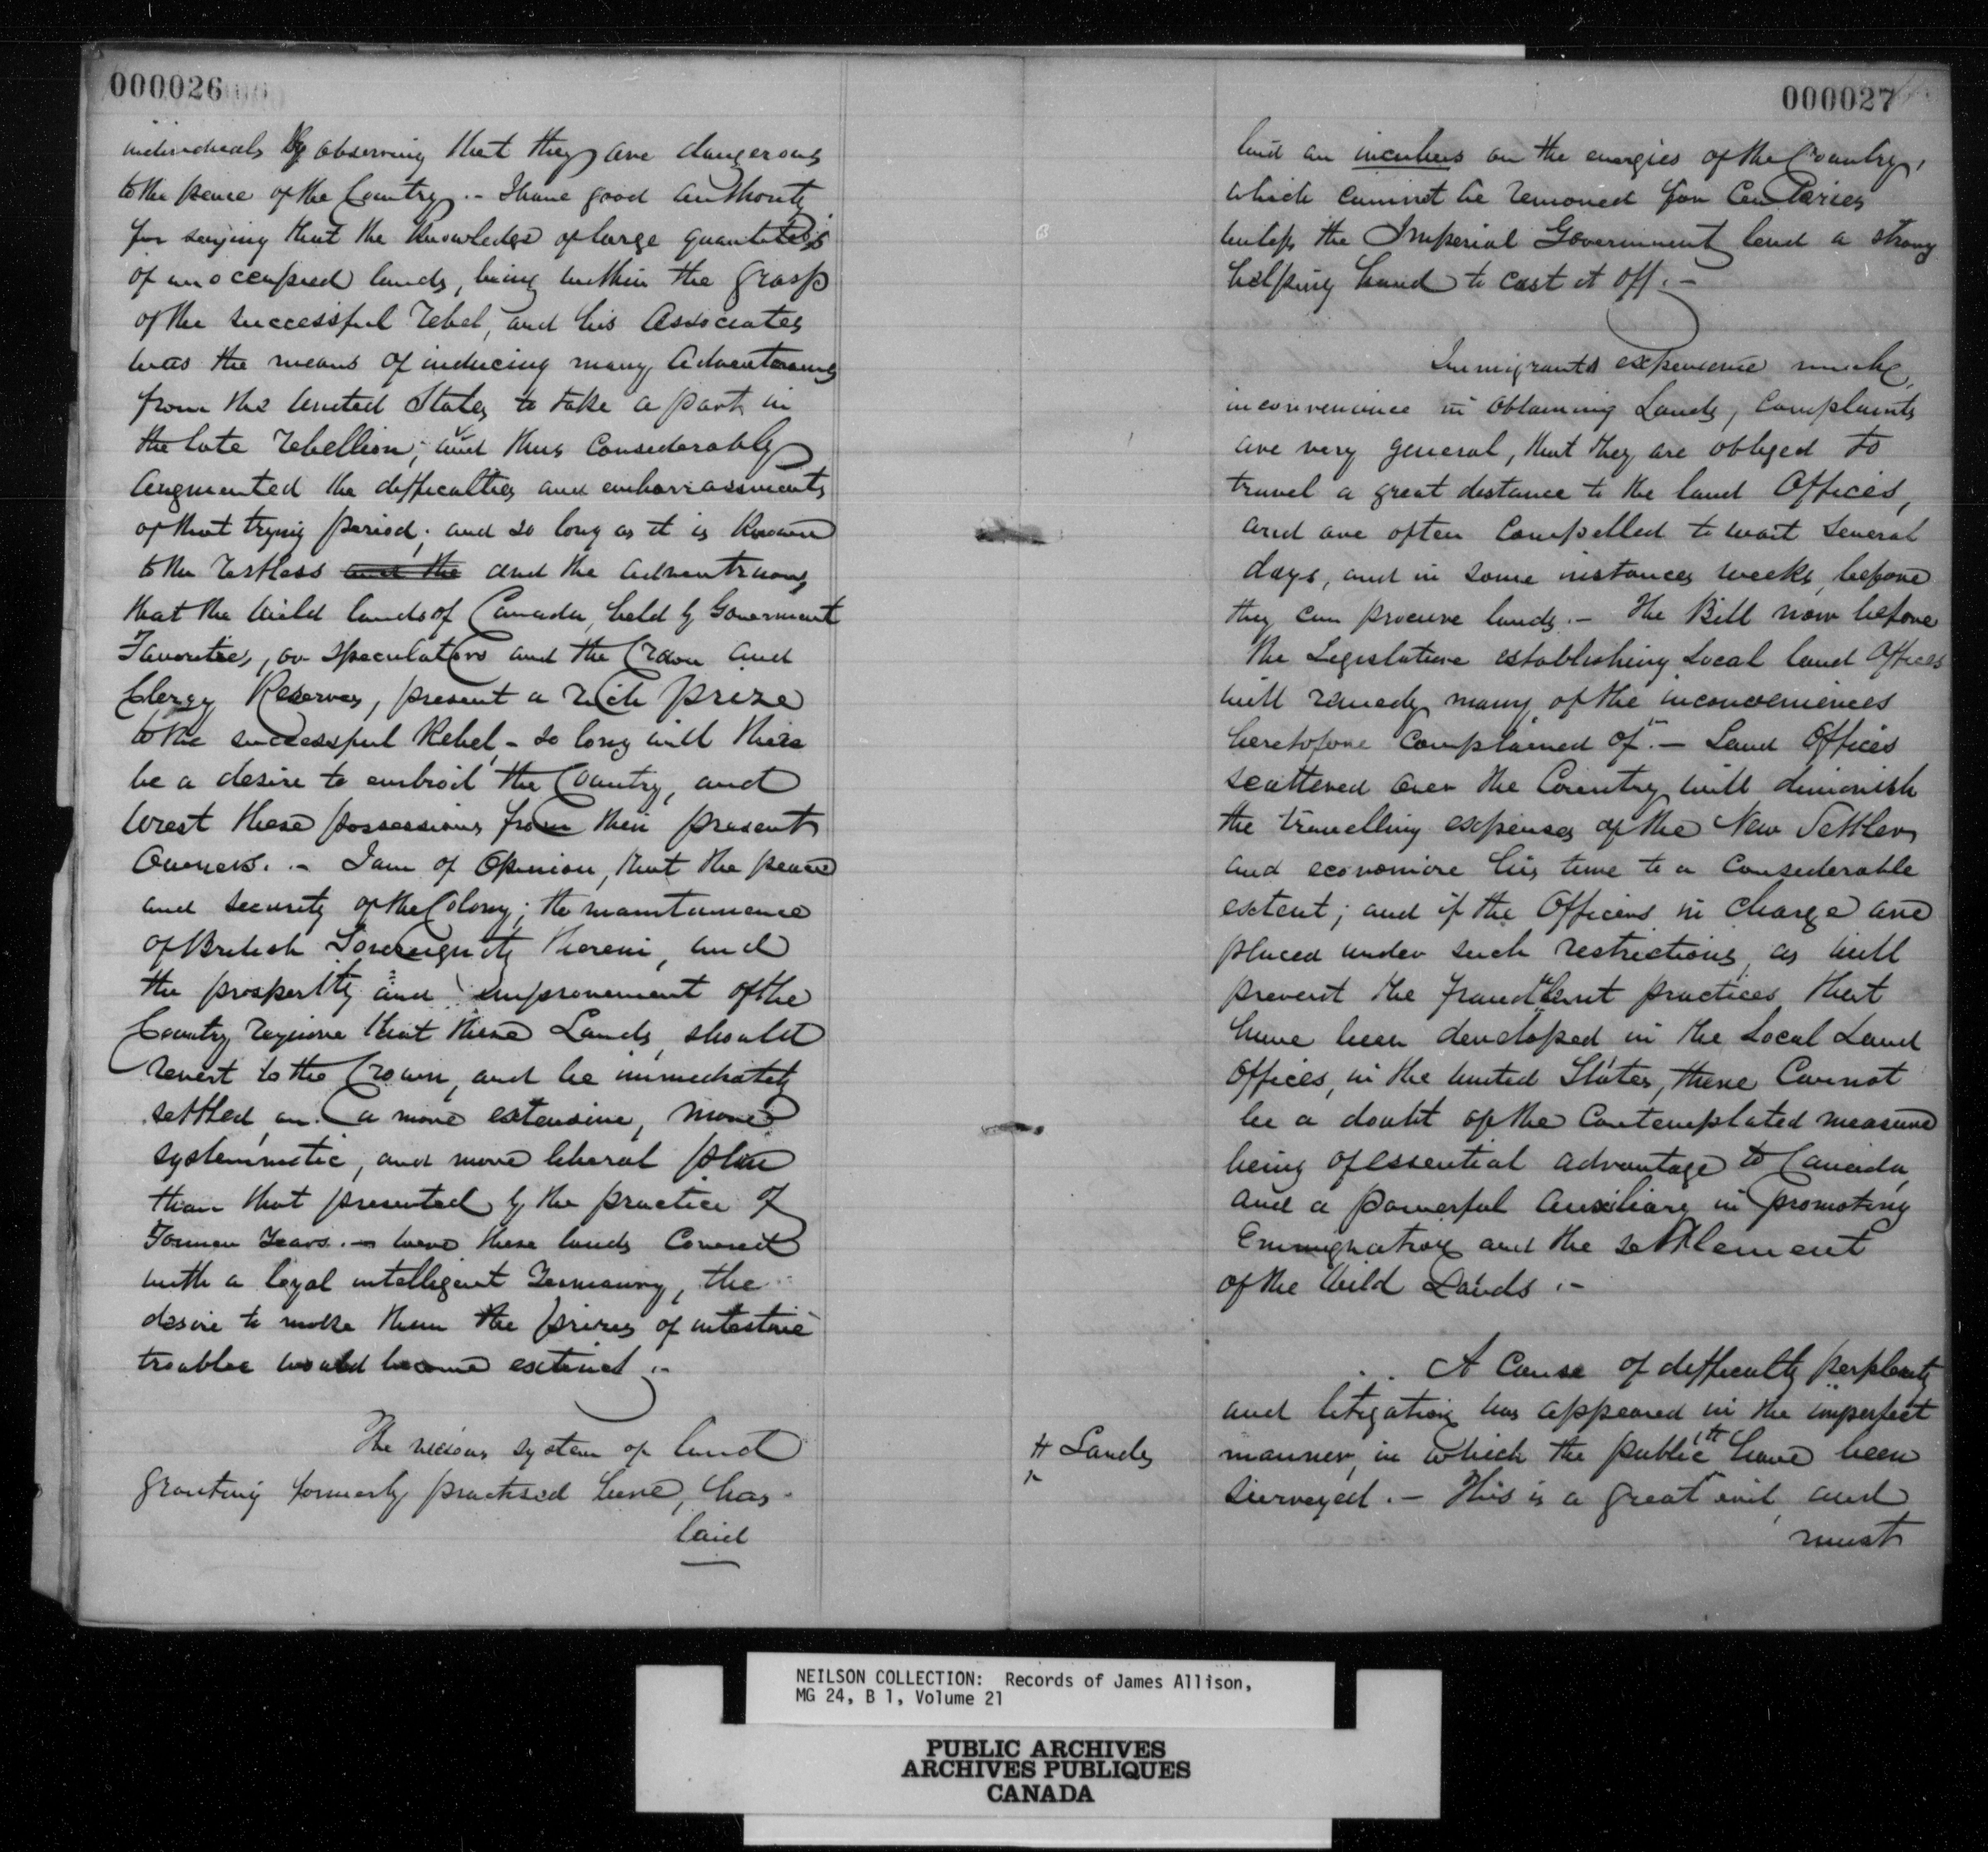 000026
individuals By observing that they are dangerous
to the peace of the Country .- I have good authority
for saying that the knowledge of large quantities
of unoccupied lands, being within the grasp
of the successful rebel, and his Associates
was the means of inducing many Adventurers
from the United States to take a part in
the late rebellion; and thus Considerably
augmented the difficulties and embarrassments
of that trying period; and so long as it is known
to the restless and the and the adventurous
that the Wild lands of Canada, held by Government
Favorites, or speculators and the Crown and
Clergy Reserves, present a rich prize
to the successful Rebel - so long will there
be a desire to embroil the Country, and
wrest these possessions from their present
Owners. - I am of Opinion, that the peace
and security of the Colony; the maintainence
of British Sovereignity therein, and
the prosperity and improvement of the
Country require that these Lands, should
revert to the Crown, and be immediately
settled, on a more extensive, more
systemmetic, and more liberal plan
than that presented by the practice of
Former Years. - were these lands Covered
with a loyal intelligent Yeomanry, the
desire to make them the prizes of intestine
troubles would become extinct .-
The vicious system of land
granting formerly practised here, has
laid
000027
laid an incubus on the energies of the Country,
which cannot be removed for Centuries
unless the Imperial Government lend a strong
helping hand to cast it off .-
Immigrants experience much
inconvenience in obtaining Lands, Complaints
are very general, that they are obliged to
travel a great distance to the land Offices,
and are often Compelled to wait several
days, and in some instances weeks, before
they can procure lands .- The Bill now before
the Legislature establishing Local land Offices
will remedy many of the inconveniences
heretofore Complained of .- Land Offices
scattered over the Country will diminish
the travelling expenses of the New Settler
and economize his time to a Considerable
extent; and if the Officers in charge are
placed under such restrictions, as will
prevent the fraudulent practices that
have been developed in the Local Land
Offices, in the United States, there Cannot
be a doubt of the Contemplated measure
being of essential advantage to Canada,
and a powerful auxiliary in promoting
Emmigration and the settlement
of the Wild Lands .-
A Cause of difficulty perplexity
and litigation has appeared in the imperfect
# Lands
manner, in which the public # have been
surveyed .- This is a great evil, and
must
NEILSON COLLECTION: Records of James Allison,
MG 24, B 1, Volume 21
PUBLIC ARCHIVES
ARCHIVES PUBLIQUES
CANADA